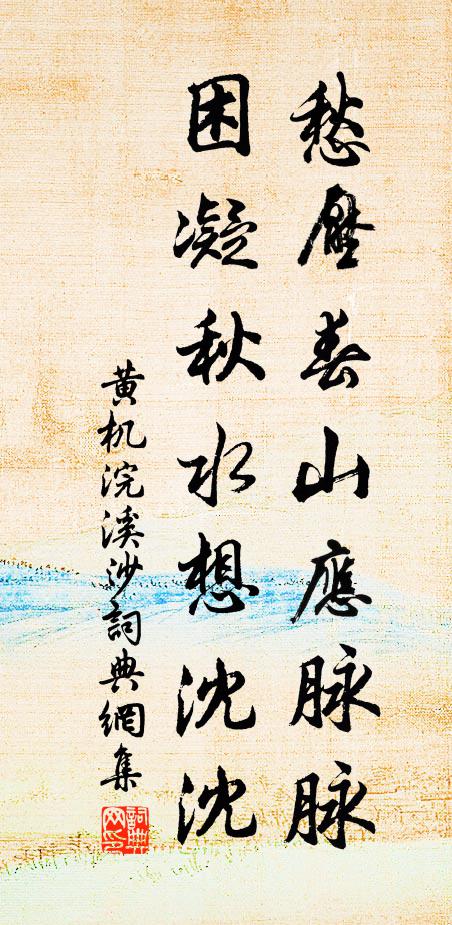 愁壓春山應脉脉
困凝秋水想沈沈
黄机浣溪沙詞典網集
詞典网印